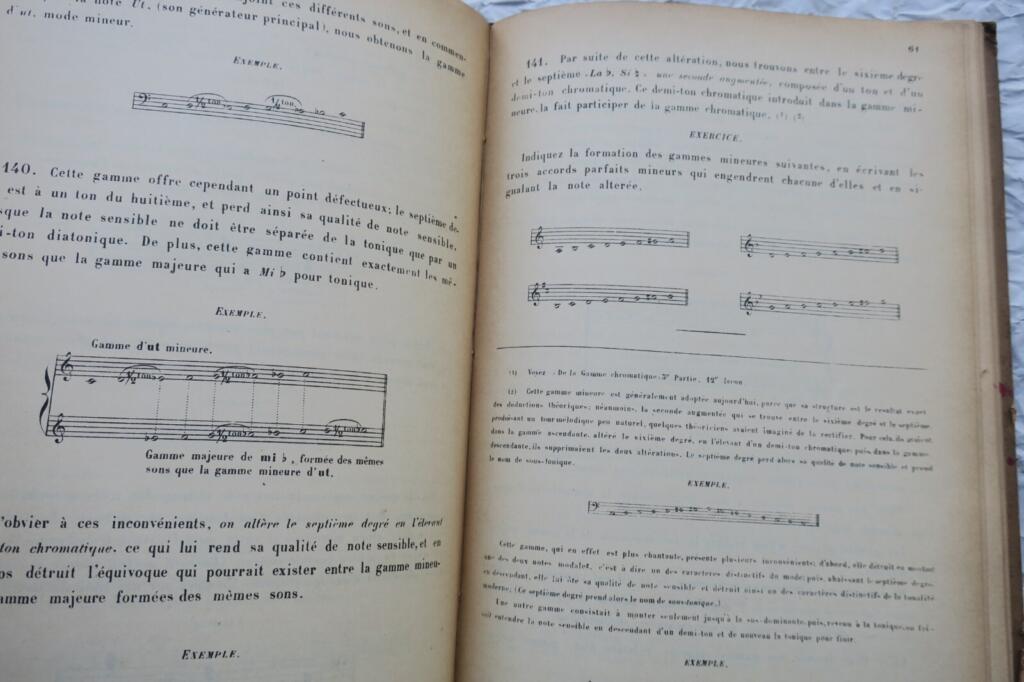 la note Ut. (son générateur principal), nous obtenons la gamme
d'ut, mode mineur.
EXEMPLE.
½ ton
½ ton
140. Cette gamme offre cependant un point défectueux; le septième de-
est à un ton du huitième, et perd ainsi sa qualité de note sensible,
sque la note sensible ne doit être séparée de la tonique que par un
i-ton diatonique. De plus, cette gamme contient exactement les mê-
sons que la gamme majeure qui a Mi ♭ pour tonique.
EXEMPLE.
Gamme d'ut mineure.
½ ton
½ ton
½ ton
½ ton
Gamme majeure de mi ♭, formée des mêmes
sons que la gamme mineure d'ut.
'obvier à ces inconvénients, on altère le septième degré en l'élevant
ton chromatique. ce qui lui rend sa qualité de note sensible, et en
os détruit l'équivoque qui pourrait exister entre la gamme mineu-
amme majeure formées des mèmes sons.
EXEMPLE.
61
141. Par suite de cette altération, nous trouvons entre le sixième degré
et le septième La ♭, Si ♮. une seconde augmentée, composée d'un ton et d'un
demi-ton chromatique. Ce demi-ton chromatique introduit dans la gamme mi-
neure, la fait participer de la gamme chromatique. (1) (2)
EXERCICE.
Indiquez la formation des gammes mineures suivantes, en écrivant les
trois accords parfaits mineurs qui engendrent chacune d'elles et en si-
gnalant la note alterée.
(1) Voyez - De la Gamme chromatique. 3e Partie, 12e leçon
(2) Cette gamme mineure est généralement adoptée aujourd'hui, parce que sa structure est le resultat exact
des deductions théoriques; néanmoins, la seconde augmentée qui se trouve entre le sixième degré et le septième,
produisant un tour mélodique peu naturel, quelques théoriciens avaient imaginé de la rectifier. Pour cela, ils avaient,
dans la gamme ascendante, altéré le sixième degré, en l'élevant d'un demi-ton chromatique; puis, dans la gamme
descendante, ils supprimaient les deux altérations. Le septième degré perd alors sa qualité de note sensible et prend
le nom de sous-tonique.
EXEMPLE.
Cette gamme, qui en effet est plus chantante, présente plusieurs inconvénients; d'abord, elle detruit en montant
une des deux notes modales, c'est à dire un des caractères distinctifs du mode; puis, abaissant le septième degré
en descendant, elle lui ôte sa qualité de note sensible et détruit ainsi un des caractères distinctifs de la tonalité
moderne. (Ce septième degré prend alors le nom de sous-tonique.)
Une autre gamme consistait à monter seulement jusqu'à la sus-dominante, puis, revenu à la tonique, on fai-
sait entendre la note sensible en descendant d'un demi-ton et de nouveau la tonique pour finir.
EXEMPLE.